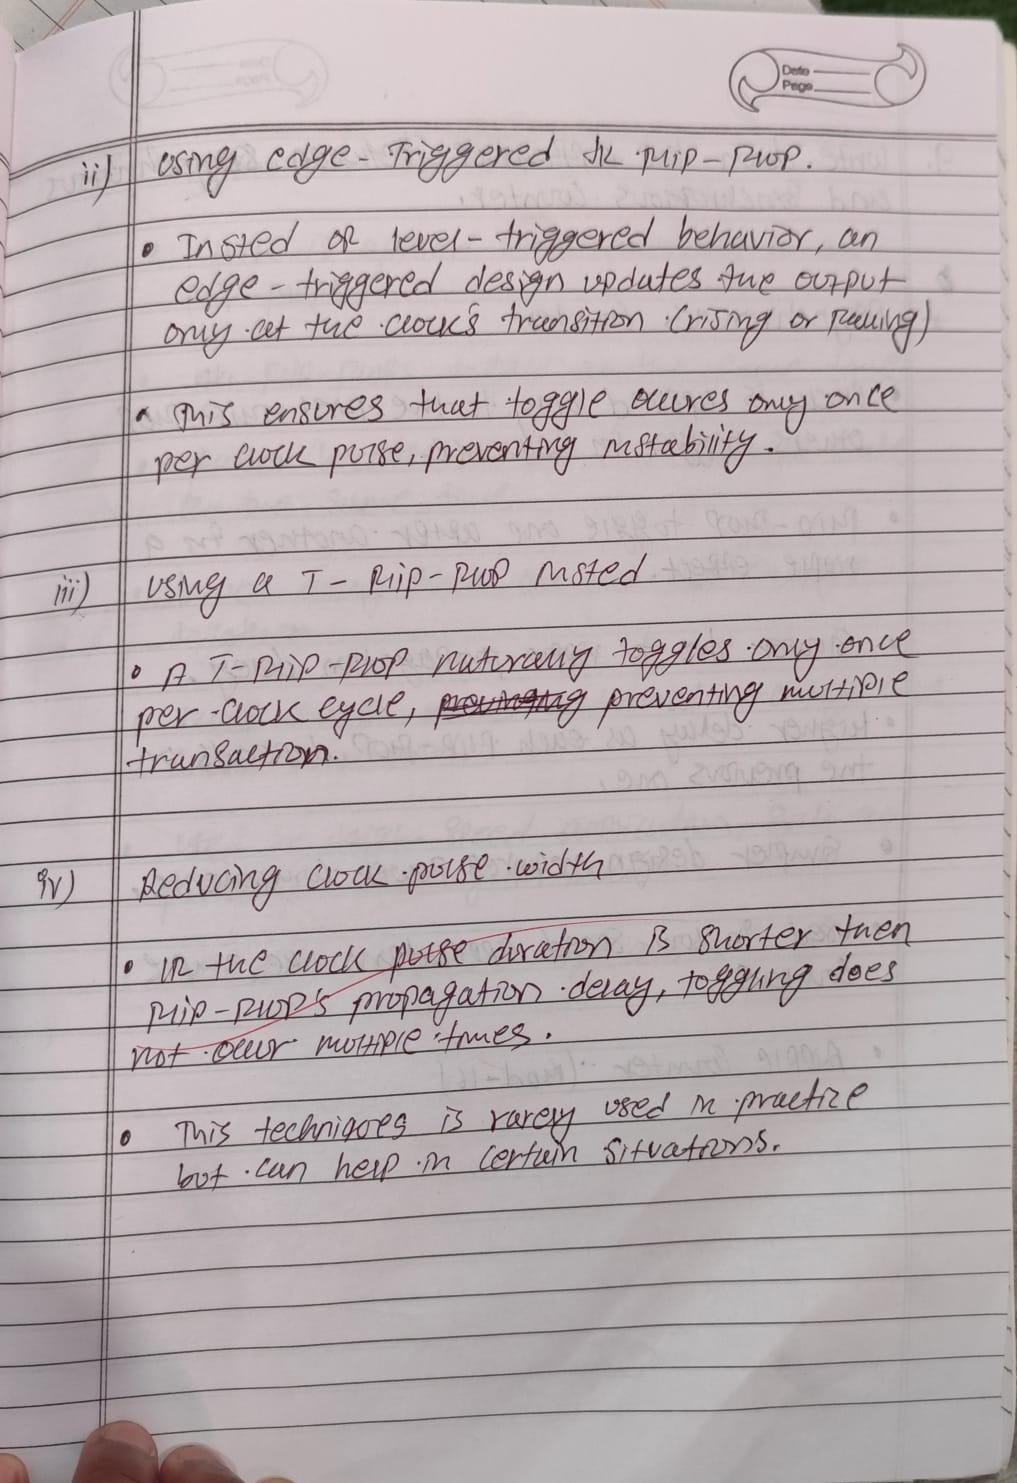 Date
Page
ii) Using edge-Triggered JK Flip-Flop.
• Insted of level-triggered behavior, an
edge-triggered design updates the output
only at the clock's transition (rising or falling)
• This ensures that toggle occures only once
per clock pulse, preventing instability.
iii) Using a T-Flip-Flop insted
• A T-Flip-Flop naturally toggles only once
per clock cycle, preventing multiple
transaction.
iv) Reducing clock pulse width
• If the clock pulse duration is shorter then
Flip-Flop's propagation delay, toggling does
not occur multiple times.
• This techniques is rarely used in practice
but can help in certain situations.